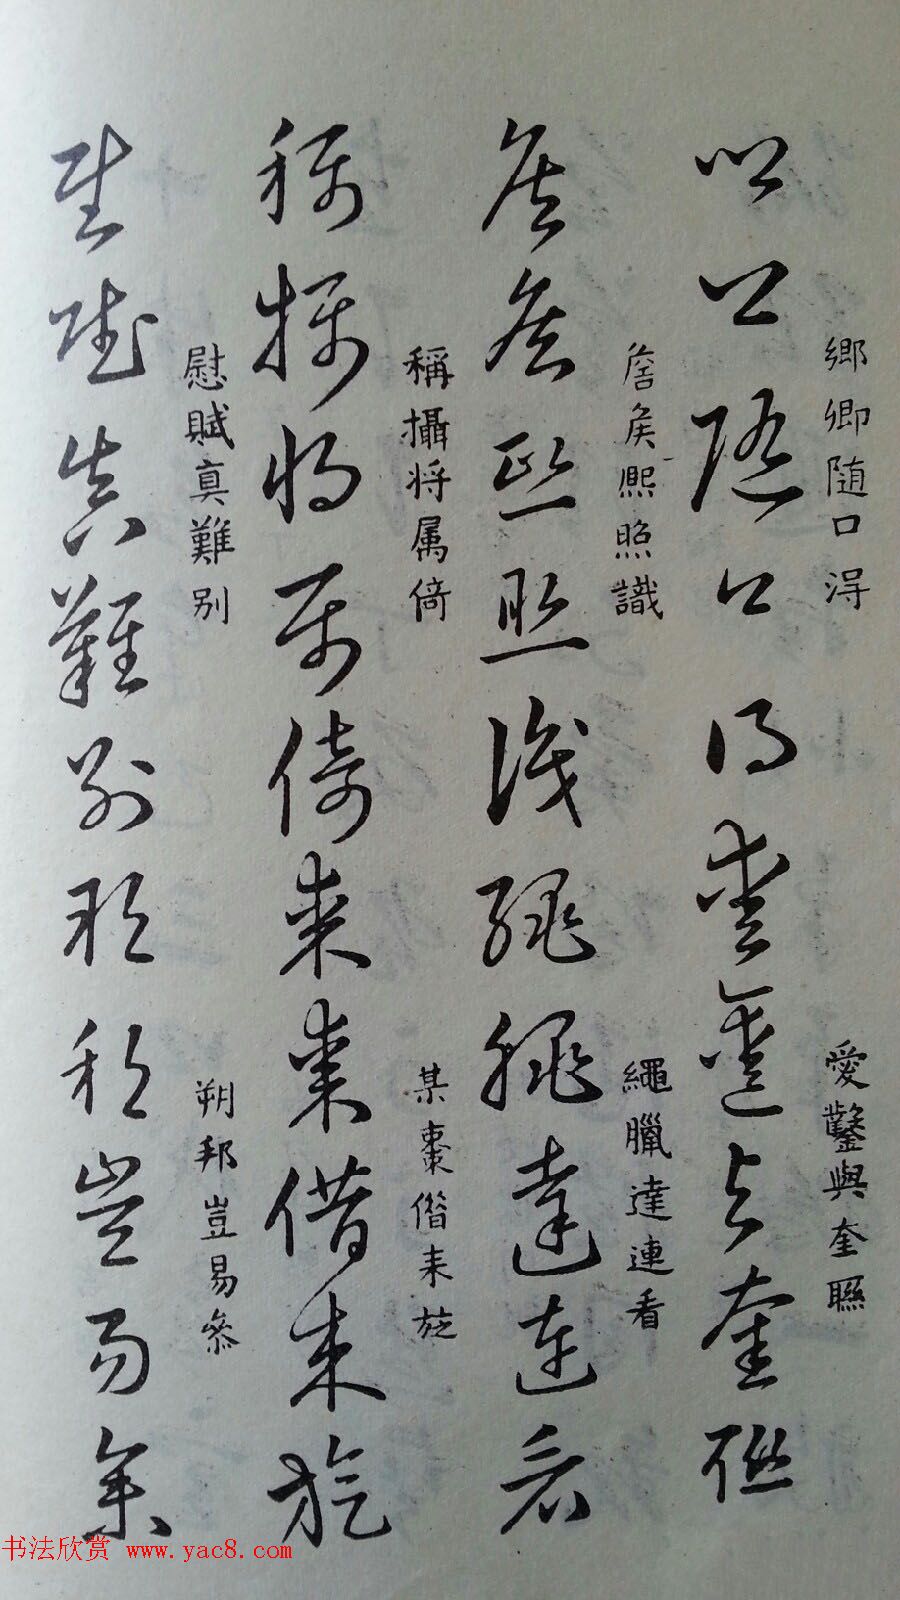 鄉卿随口淂
愛鑿與奎聮
詹矦熙照識
繩臘達連看
稱攝將属倚
某棗偕耒於
慰賦真難别
朔邦豈易叅
书法欣赏 www.yac8.com